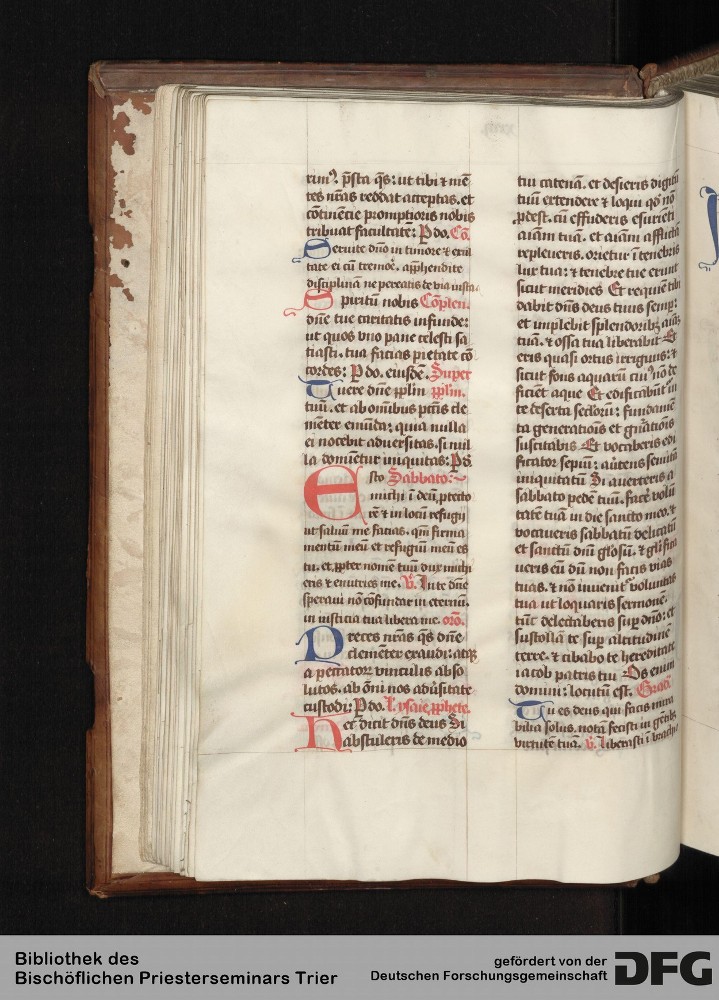 rimꝰ. p̄sta q̄s: ut tibi ⁊ mē
tes nr̄as reddat acceptas. et
cōtinēcie promptioris nobis
tribuat facultatē: P do. Cō.
Seruite dn̄o in timore ⁊ exul
tate ei cū tremoꝛe. app̄hendite
disciplinā ne pereatis de via iusta.
Spiritū nobis Cōplen.
dn̄e tue caritatis infunde:
ut quos vno pane celesti sa
tiasti. tua facias pietate cō
cordes: P do. eiusdē. Super
Tuere dn̄e pplm̄ pplm̄.
tuū. et ab omībus pctīs cle
mēter emūda: quia nulla
ei nocebit aduersitas. si nul
la domīetur iniquitas: P dō
Esto Sabbato:
michi ī deū ptecto
rē ⁊ in locū refugij
ut saluū me facias. qm̄ firma
mentū meū et refugiū meū es
tu. et ꝓpter nomē tuū dux michi
eris ⁊ enutries me. V̄. In te dn̄e
speraui nō cōfundar in eternū.
in iusticia tua libera me. orō.
Preces nr̄as q̄s dn̄e
clemēter exaudi: atqꝫ
a peccatoꝝ vinculis abso
lutos. ab ōni nos aduˢitate
custodi: P do. l. ysaie. ꝓphete.
Hec dicit dn̄s deus Si
abstuleris de medio
tui catenā. et desieris digitū
tuū extendere ⁊ loqui qꝺ nō
ꝓdest. cū effuderis esuriēti
aīam tuā. et aīam afflictā
repleueris. orietur ī tenebris
lux tua: ⁊ tenebre tue erunt
sicut meridies Et requiē tibi
dabit dn̄s deus tuus semp̄:
et implebit splendoribꝫ aīaꝫ
tuā. ⁊ ossa tua liberabit Et
eris quasi ortus irriguus: ⁊
sicut fons aquarū cuiꝰ nō de
ficiēt aque Et edificabūt' in
te deserta seclorū: fundamē
ta generatiois et gn̄atiois
suscitabis Et vocaberis edi
ficator sepiū: aūtens semitā
iniquitatū Si auerteris a
sabbato pedē tuū. facē volū
tatē tuā in die sancto meo. ⁊
vocaueris sabbatū delicatū
et sanctū dn̄i glosū. ⁊ glīfica
ueris eū dū non facis vias
tuas. ⁊ nō inuenit' voluntas
tua ut loquaris sermonē.
tūc delectaberis suꝑ dn̄o: et
sustollā te suꝑ altitudinē
terre. ⁊ cibabo te hereditate
iacob patris tui Os enim
domini: locutū est. Grad.
Tu es deus qui facis mira
bilia solus. notā fecisti in gētibꝫ
virtutē tuā. V̄. liberasti ī brachio
Bibliothek des
Bischöflichen Priesterseminars Trier
gefördert von der
Deutschen Forschungsgemeinschaft
DFG